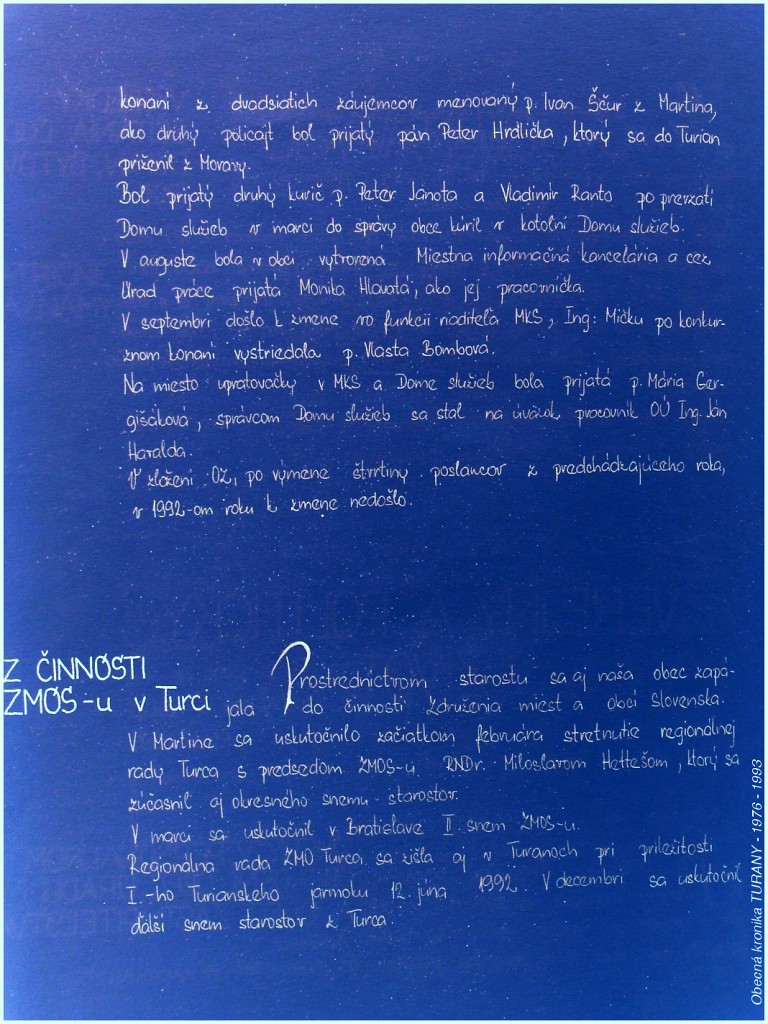 konaní z dvadsiatich záujemcov menovaný p. Ivan Ščur z Martina,
ako druhý policajt bol prijatý pán Peter Hrdlička, ktorý sa do Turian
priženil z Moravy.
Bol prijatý druhý kurič p. Peter Janota a Vladimír Ranto po prevzatí
Domu služieb v marci do správy obce kúril v kotolni Domu služieb.
V auguste bola v obci vytvorená Miestna informačná kancelária a cez
Úrad práce prijatá Monika Hlavatá, ako jej pracovníčka.
V septembri došlo k zmene vo funkcii riaditeľa MKS, Ing. Mičku po konkur-
znom konaní vystriedala p. Vlasta Bombová.
Na miesto upratovačky v MKS a Dome služieb bola prijatá p. Mária Ger-
gišáková, správcom Domu služieb sa stal na úväzok pracovník OÚ Ing. Ján
Haralda.
V zložení OZ, po výmene štvrtiny poslancov z predchádzajúceho roka,
v 1992-om roku k zmene nedošlo.
Z ČINNOSTI
ZMOS-u v Turci
Prostredníctvom starostu sa aj naša obec zapá-
jala do činnosti Združenia miest a obcí Slovenska.
V Martine sa uskutočnilo začiatkom februára stretnutie regionálnej
rady Turca s predsedom ZMOS-u RNDr. Miloslavom Hettešom, ktorý sa
zúčasnil aj okresného snemu starostov.
V marci sa uskutočnil v Bratislave II. snem ZMOS-u.
Regionálna rada ZMO Turca sa zišla aj v Turanoch pri príležitosti
I.-ho Turianskeho jarmoku 12. júna 1992. V decembri sa uskutočnil
ďalší snem starostov z Turca.
Obecná kronika TURANY - 1976 - 1993